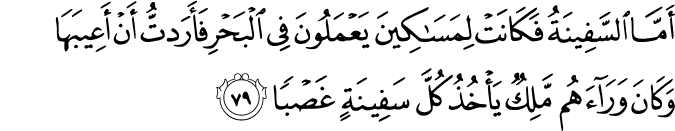 أَمَّا ٱلسَّفِينَةُ فَكَانَتۡ لِمَسَٰكِينَ يَعۡمَلُونَ فِي ٱلۡبَحۡرِ فَأَرَدتُّ أَنۡ أَعِيبَهَا
وَكَانَ وَرَآءَهُم مَّلِكٞ يَأۡخُذُ كُلَّ سَفِينَةٍ غَصۡبٗا ٧٩